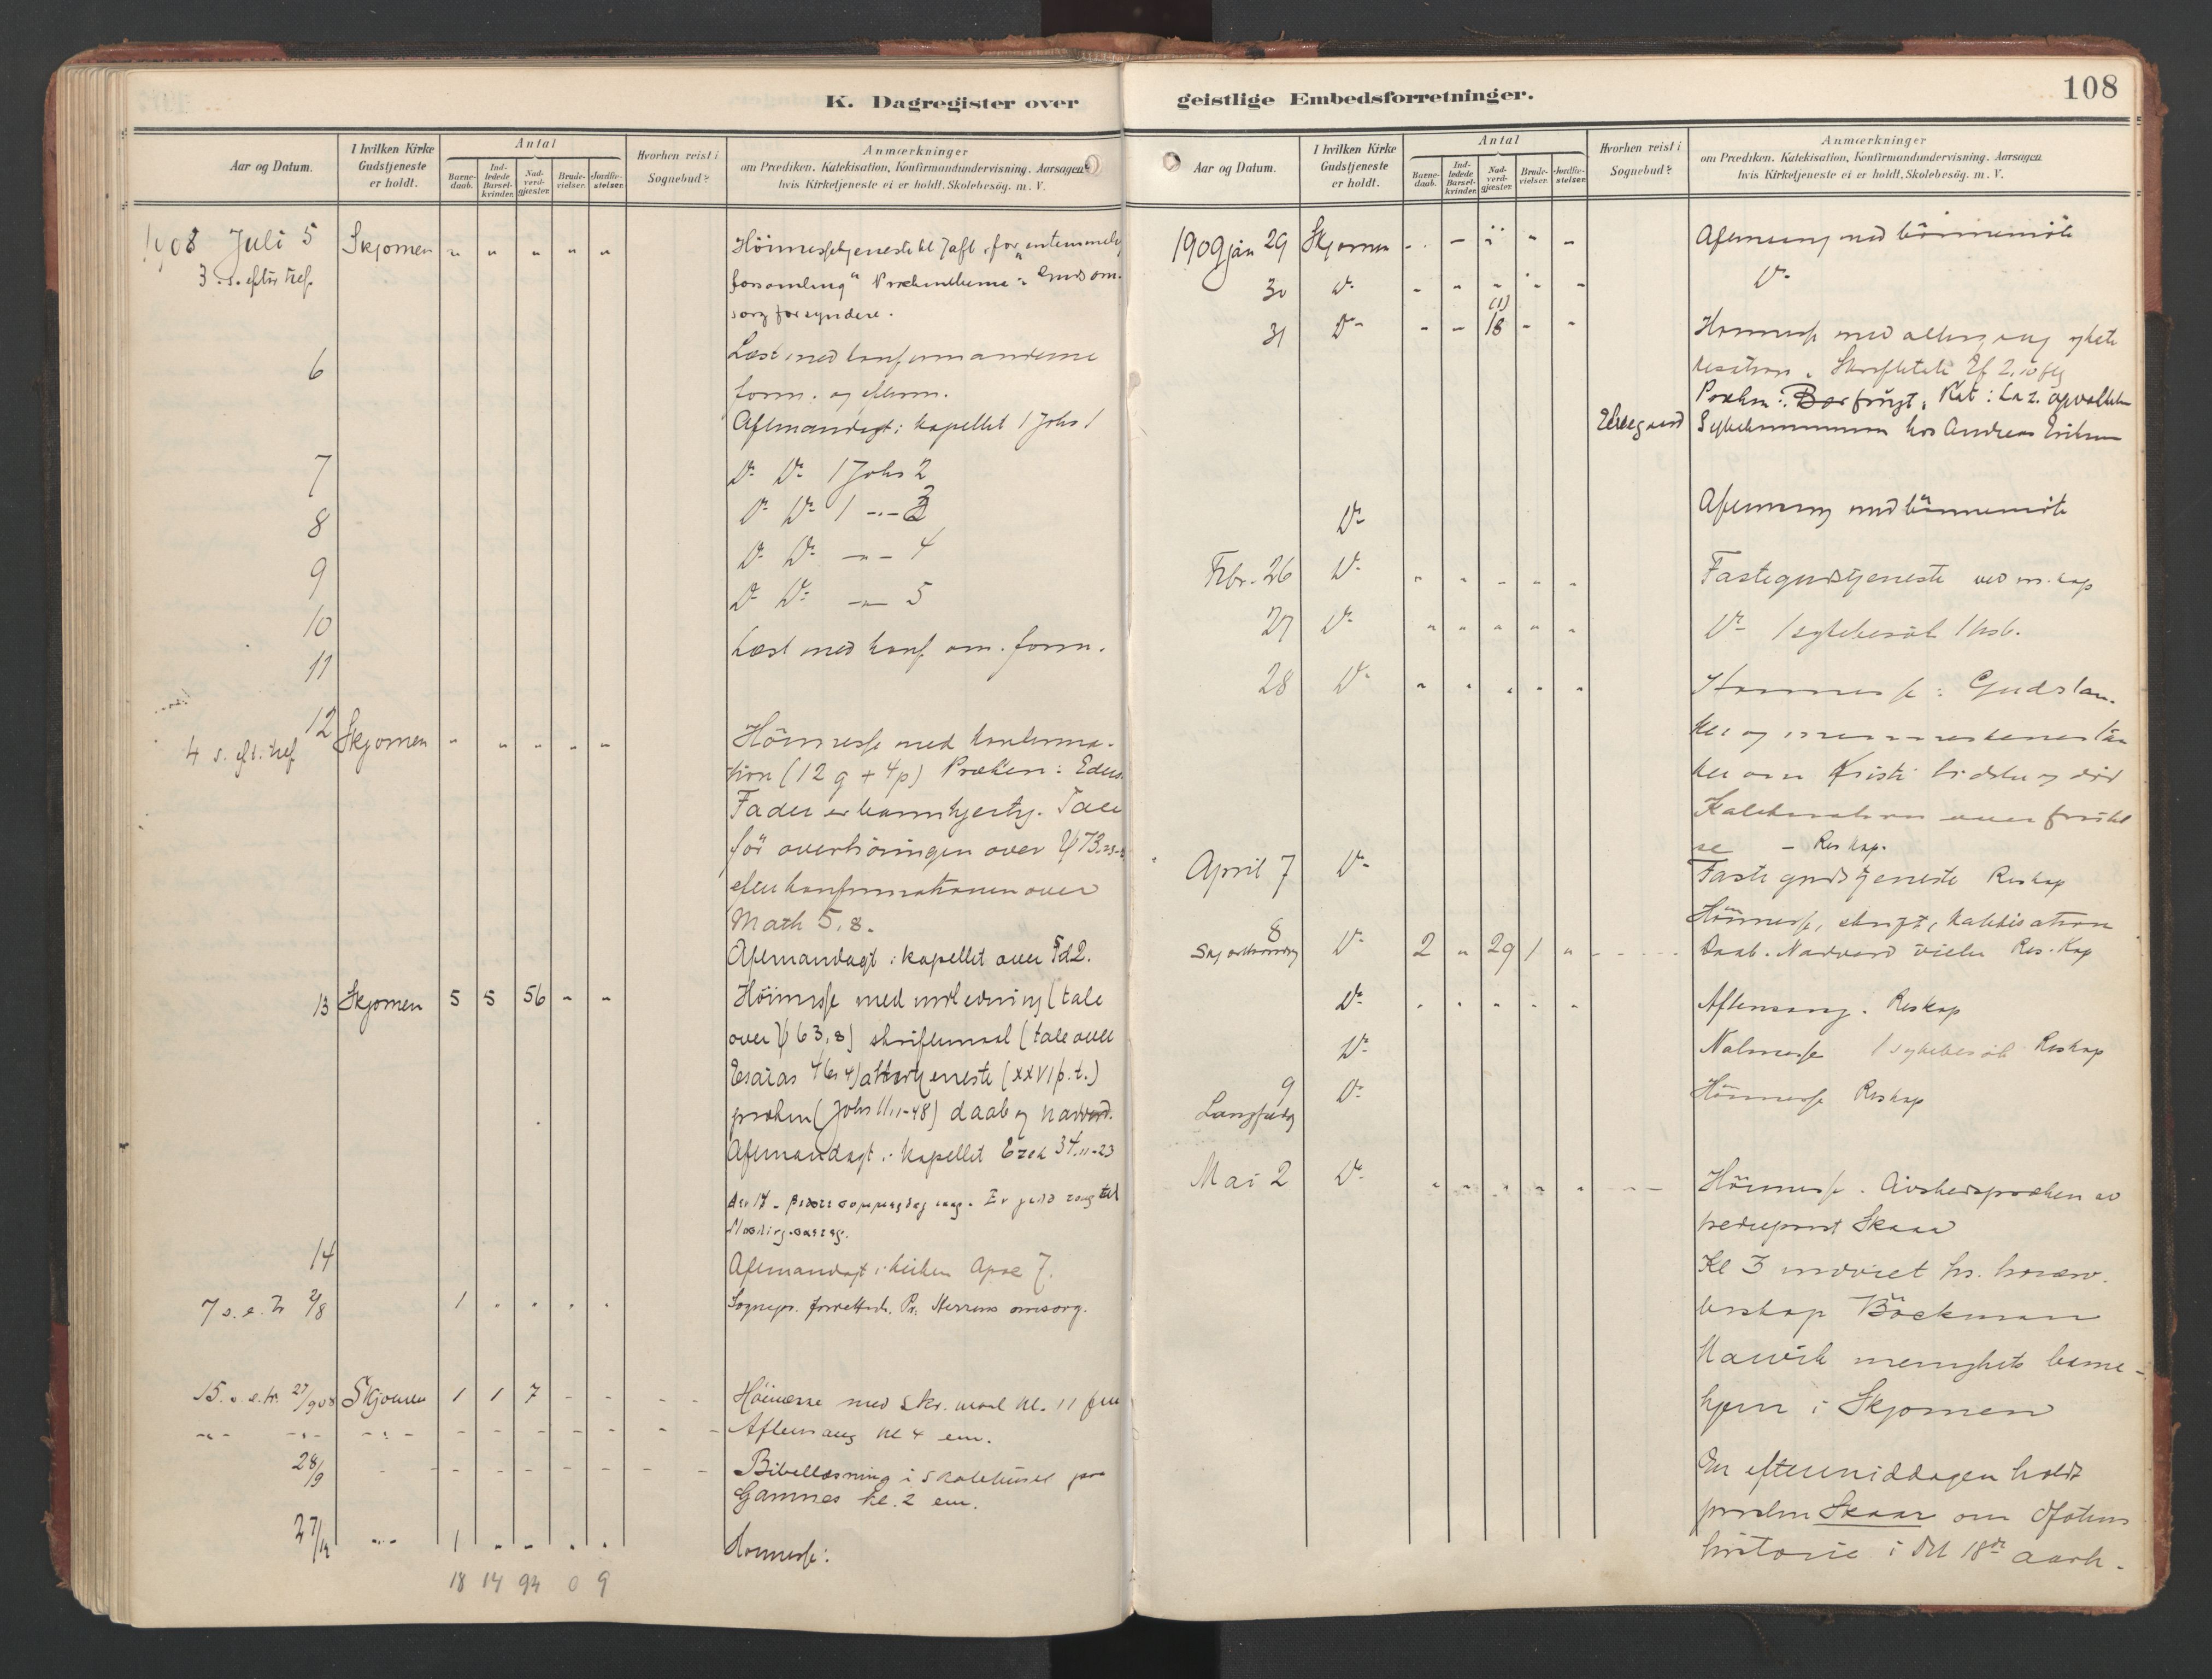 108
K. Dagregister over
geistlige Embedsforretninger.
Aar og Datum.
I hvilken Kirke
Gudstjeneste
er holdt.
Antal
Barne-
daab.
Ind-
ledede
Barsel-
kvinder.
Nad-
verd-
gjæster.
Brude-
vielser.
Jordfæ-
stelser.
Hvorhen reist i
Sognebud?
Anmærkninger
om Prædiken. Katekisation, Konfirmandundervisning. Aarsagen
hvis Kirketjeneste ei er holdt. Skolebesög. m. V.
1908 Juli 5 Skjomen " " " " "
3. s. efter tref.
forsamling"
sorg for syndere.
6 Læst med konfirmanderne
form. og efterm.
Aftenandagt i kapellet 1 Johs 1
7 Do Do 1 Johs 2
8 Do Do 1 -"- 3
9 Do Do -"- 4
10 Do Do -"- 5
11 Læst med konf. om. form.
12 Skjomen " " " " "
4 s. eft. tref
Höimesse med konfirma-
tion (12 g + 4 p) Præken: Eders
Fader er barmhjertig. Tale
för overhöringen over ψ 73
efter konfirmationen over
Math 5,8.
Aftenandagt i kapellet over
13 Skjomen 5 5 56 - -
Höimesse med indledning (tale
over ψ 63,8) skriftemaal (tale over
Esaias 46,4) altertjeneste (XXVI p. t.)
præken (Johs 11,1-48) daab og nadverd.
Aftenandagt i kapellet Ezek 34,11-23
14 Aftenandagt i kirken Apoc 7.
7 s. e. tr 2/8 1 . . . .
Sognepr. forrettede. Pr. Herrens omsorg.
15. s. e. tr. 27/9 08 Skjomen 1 1 7 - - - -
Höimesse med skr. maal kl. 11 fm
Aftensang kl 4 em.
28/9 Bibellæsning i skolehuset paa
Gamnes kl. 2 em.
27/12 -"- 1 - - . .
Höimesse:
18 14 94 0 9
Aar og Datum.
I hvilken Kirke
Gudstjeneste
er holdt.
Antal
Barne-
daab.
Ind-
ledede
Barsel-
kvinder.
Nad-
verd-
gjæster.
Brude-
vielser.
Jordfæ-
stelser.
Hvorhen reist i
Sognebud?
Anmærkninger
om Prædiken. Katekisation, Konfirmandundervisning. Aarsagen
hvis Kirketjeneste ei er holdt. Skolebesög. m. V.
1909 jan 29 Skjomen - - " - -
Aftensang med bönnemöte
30 Do - - - - - Do
(1)
31 Do - - 18 - -
Höimesse med altergang og kate
kisation. Skriftetale Ef 2,10 flg
hos Andreas Eriksen
Do Aftensang med bönnemöte
Febr. 26 Do " " - " "
Fastegudstjeneste ved m. kap
27 Do " " " " "
Do 1 sykebesök 1 hsb.
28 Do " " " " "
Höimesse: Guds tan-
ker og menneskenes tan
ker om Kristi lidelse og död
Katekisation over fristel
se - Res kap.
April 7 Do
Fastegudstjeneste Reskap
8
Skjærtorsdag Do 2 " 29 1 "
Höimesse, skrift, katekisation
Daab. Nadverd vielse Res. Kap
Do . . . . .
Aftensang. Reskap
Do Natmesse 1 sykebesök Reskap
9
Langfredag Do Höimesse Reskap
Mai 2 Do " " " " "
Höimesse. Avskedspræken av
Skaar
Kl 3 indviet hr.
biskop Böckman
Narvik menighets barne-
hjem i Skjomen
Om eftermiddagen holdt
provsten Skaar om Ofotens
historie i det 18de aarh.